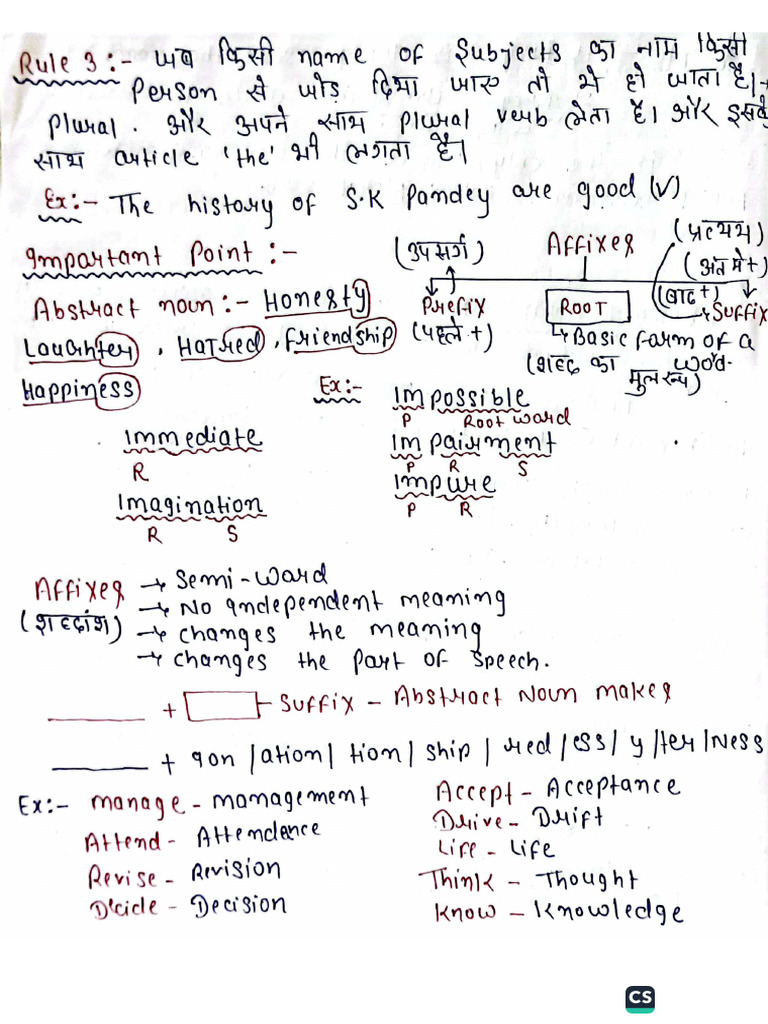 Rule 3:- जब किसी name of Subjects का नाम किसी
Person से जोड़ दिया जाए तो ये हो जाता है।→
plural. और अपने साथ plural verb लेता है। और इसके
साथ article 'the' भी लगता है।
Ex:- The history of S.K Pandey are good (V)
Important Point:-
(उपसर्ग) Affixes (प्रत्यय)
(अंत मे +)
(बाद +)
Abstract noun:- Honesty
Prefix ROOT Suffix
Laughter, Hatred, friendship
(पहले +) ↳ Basic form of a word.
(शब्द का मूलरूप)
Happiness
Ex:- Impossible
P Root word
Immediate Impairment
R P R S
Imagination Impure
R S P R
Affixes → Semi-word
(शब्दांश) → No independent meaning
→ changes the meaning
→ changes the part of speech.
+ Suffix - Abstract Noun makes
+ ion/ation/tion/ship/red/ess/y/ter/Ness
Ex:- manage - management Accept - Acceptance
Attend - Attendence Drive - Drift
Revise - Revision Life - Life
Dicide - Decision Think - Thought
Know - Knowledge
CS